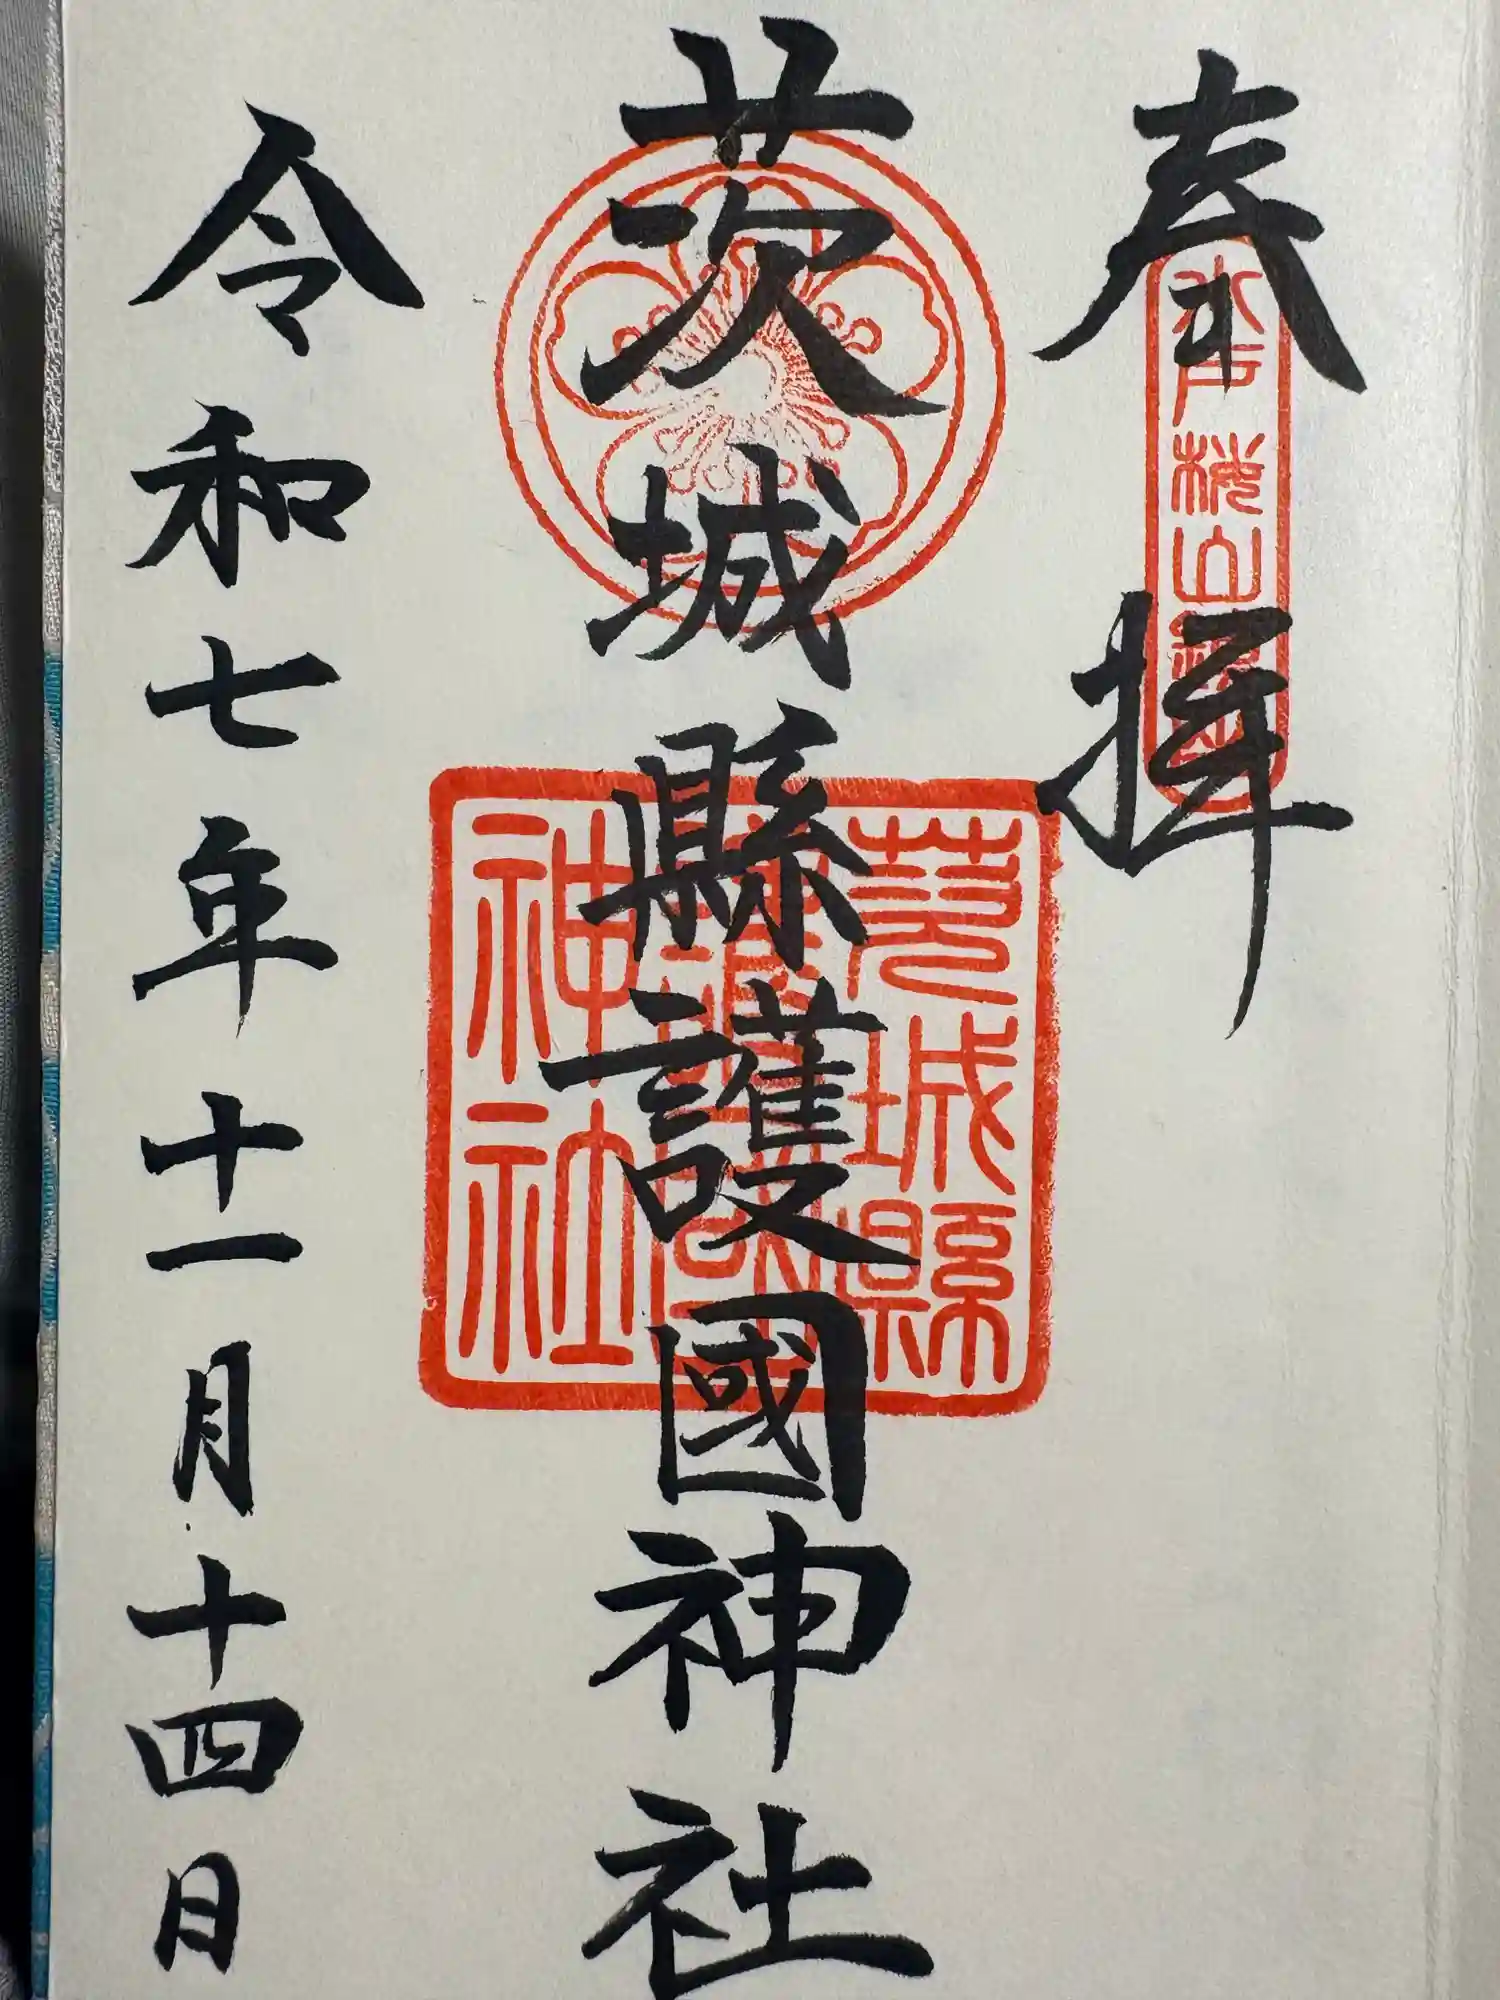 奉拝
水戸桜山
茨城縣護國神社
茨城縣
護國
神社
令和七年十一月十四日